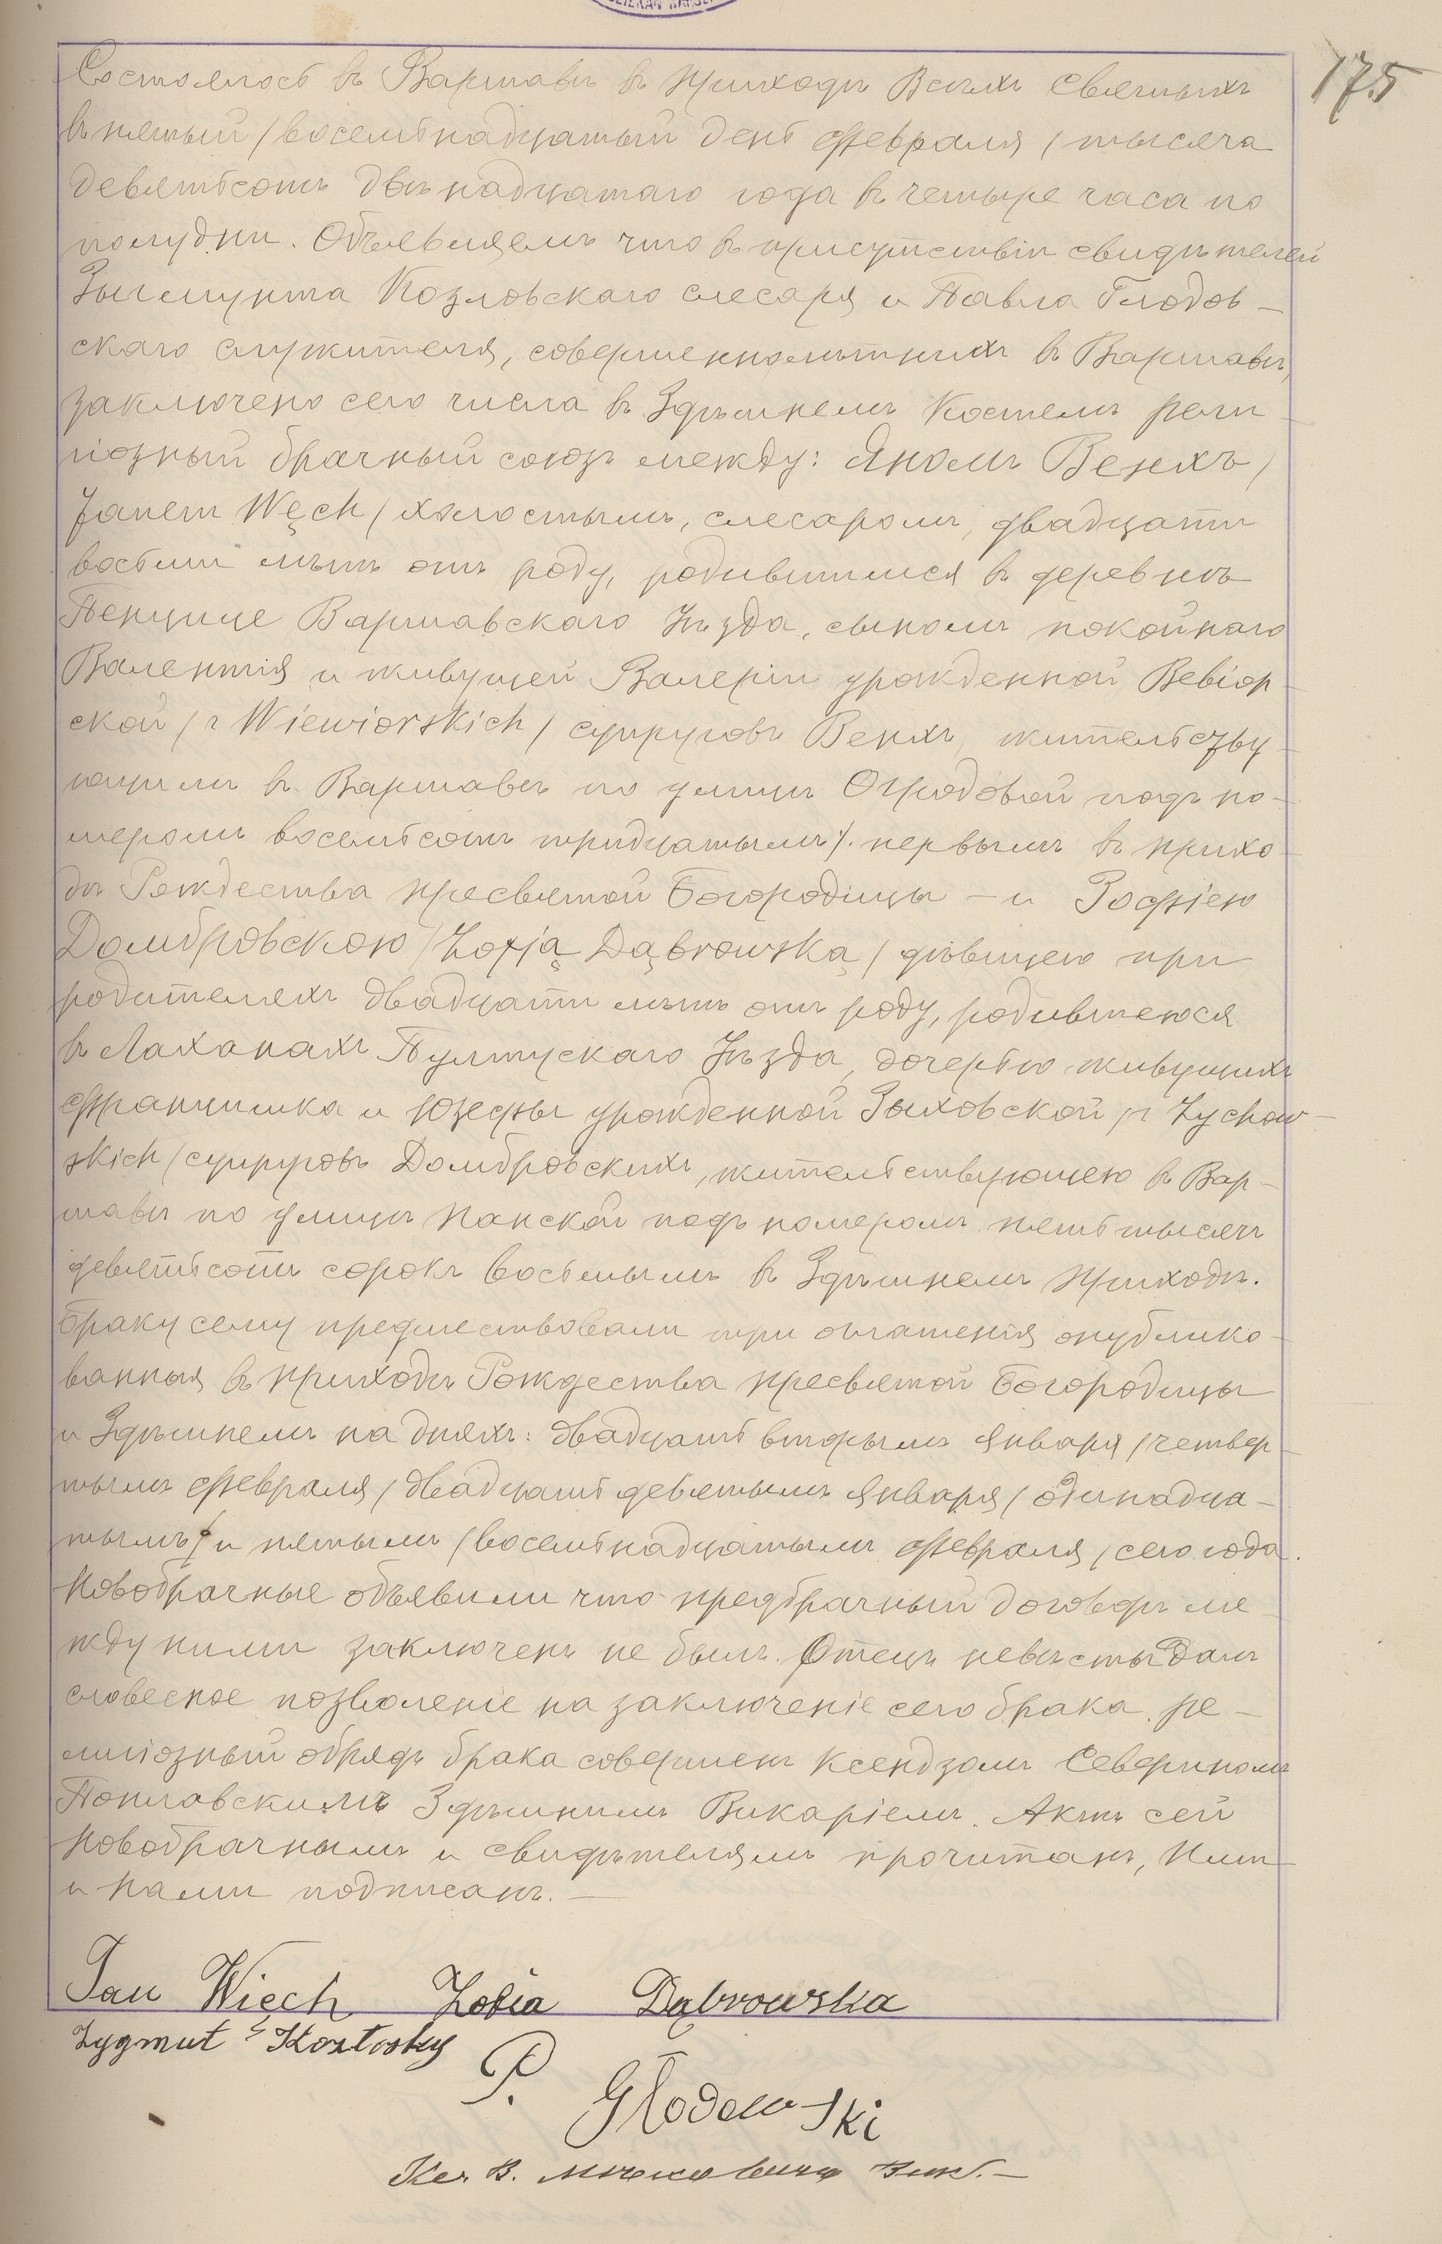 175
Состоялось въ Варшавѣ въ приходѣ Всѣхъ Святыхъ
въ пятый /восемнадцатый день февраля / тысяча
девятьсотъ двѣнадцатаго года въ четыре часа по
полудни. Объявляемъ что въ присутствіи свидѣтелей
Зыгмунта Козловскаго слесаря и Павла Глодов-
скаго служителя, совершеннолѣтнихъ въ Варшавѣ,
заключено сего числа въ здѣшнемъ Костелѣ рели
гіозный брачный союзъ между: Яномъ Венхъ /
Janem Węch / холостымъ, слесаромъ, двадцати
восьми лѣтъ отъ роду, родившимся въ деревнѣ
Пенцице Варшавскаго Уѣзда, сыномъ покойнаго
Валентія и живущей Валеріи урожденной Вевіор-
ской / z Wiewiorskich / супруговъ Венхъ, жительству-
ющимъ въ Варшавѣ по улицѣ Огродовой подъ но-
меромъ восемьсотъ тридцатымъ /. первымъ въ прихо-
дѣ Рождества Пресвятой Богородицы – и Зофіею
Домбровскою / Zofją Dąbrowską / дѣвицею при
родителяхъ двадцати лѣтъ отъ роду, родившеюся
въ Лаханахъ Пултускаго Уѣзда, дочерью живущихъ
Францишка и Юзефы урожденной Зыховской / z Zychow-
skich / супруговъ Домбровскихъ, жительствующею въ Вар-
шавѣ по улицѣ Панской подъ номеромъ пять тысячъ
девятьсотъ сорокъ восьмымъ въ здѣшнемъ приходѣ.
Браку сему предшествовали три оглашенія опублико-
ванныя въ приходѣ Рождества Пресвятой Богородицы
и Здѣшнемъ на дняхъ: двадцать вторымъ Января / четвер-
тымъ Февраля / двадцать девятымъ Января / одинадца-
тымъ / и пятымъ / восемнадцатымъ Февраля / сего года.
Новобрачные объявили что предбрачный договоръ ме-
жду ними заключенъ не былъ. Отецъ невѣсты далъ
словесное позволеніе на заключеніе сего брака. ре-
лигіозный обрядъ брака совершенъ Ксендзомъ Севериномъ
Поплавскимъ Здѣшнимъ Викаріемъ. Актъ сей
Новобрачнымъ и свидѣтелямъ прочитанъ, Ими
и Нами подписанъ. –
Jan Więch Zofia Dąbrowska
Zygmut Kozłosky
P. Głodowski
Кс. В. Вик. –